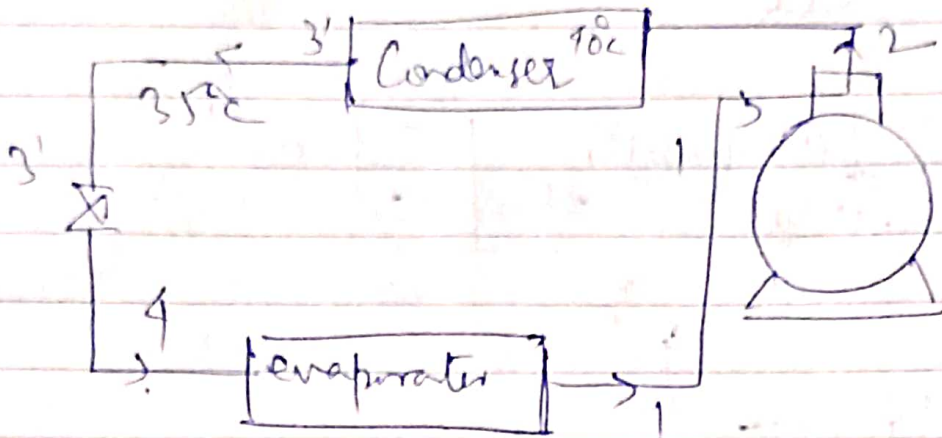 3' Condenser 40°c 2
35°c
3' 1
4
evaporater
1